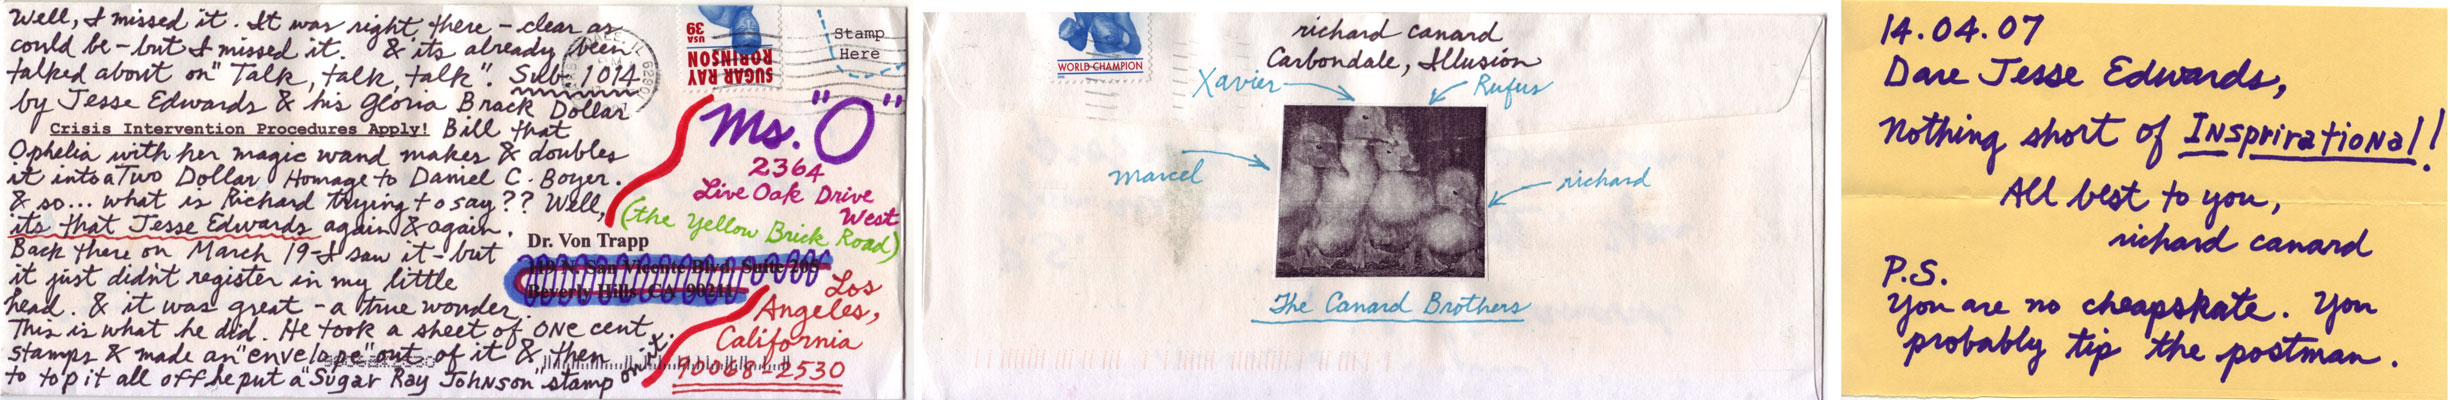 Well, I missed it. It was right there – clear as
could be – but I missed it. & its already been
talked about on "Talk, talk, talk". Sub. 1014
by Jesse Edwards & his Gloria Brack Dollar
Crisis Intervention Procedures Apply! Bill that
Ophelia with her magic wand makes & doubles
it into a Two Dollar Homage to Daniel C. Boyer.
& so... what is Richard trying to say?? Well,
its that Jesse Edwards again & again.
Back there on March 19 – I saw it – but
it just didn't register in my little
head. & it was great – a true wonder.
This is what he did. He took a sheet of one cent
stamps & made an "envelope" out of it & then
to top it all off he put a "Sugar Ray Johnson" stamp on it.
USA 39
SUGAR RAY
ROBINSON
Stamp
Here
Ms. "O"
2364
Live Oak Drive
West
(the Yellow Brick Road)
Dr. Von Trapp
119 N. San Vicente Blvd, Suite 205
Beverly Hills, CA 90211
Los
Angeles,
California
90068-2530
WORLD CHAMPION
richard canard
Carbondale, Illusion
Xavier
Rufus
marcel
richard
The Canard Brothers
14.04.07
Dare Jesse Edwards,
Nothing short of Insprirational!!
All best to you,
richard canard
P.S.
You are no cheapskate. You
probably tip the postman.